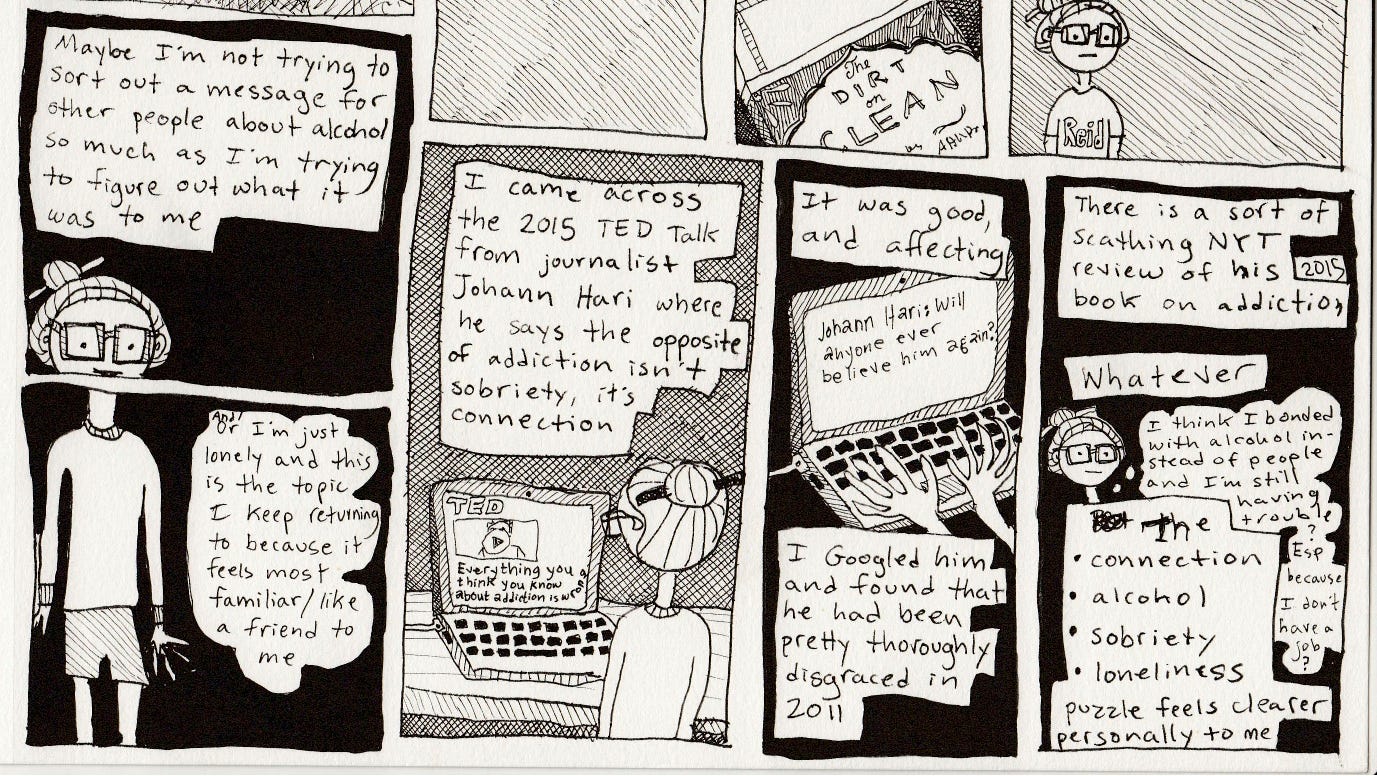 The
DIRT
on
CLEAN
by
Reid
Maybe I'm not trying to
sort out a message for
other people about alcohol
so much as I'm trying
to figure out what it
was to me
And/
Or I'm just
lonely and this
is the topic
I keep returning
to because it
feels most
familiar/like
a friend to
me
I came across
the 2015 TED Talk
from journalist
Johann Hari where
he says the opposite
of addiction isn't
sobriety, it's
connection
TED
Everything you
think you know
about addiction is wrong
It was good,
and affecting
Johann Hari: Will
anyone ever
believe him again?
I Googled him
and found that
he had been
pretty thoroughly
disgraced in
2011
There is a sort of
scathing NYT
review of his 2015
book on addiction
Whatever
I think I bonded
with alcohol in-
stead of people
and I'm still
having
trouble
?
Esp
because
I don't
have a
job
?
The
• connection
• alcohol
• sobriety
• loneliness
puzzle feels clearer
personally to me